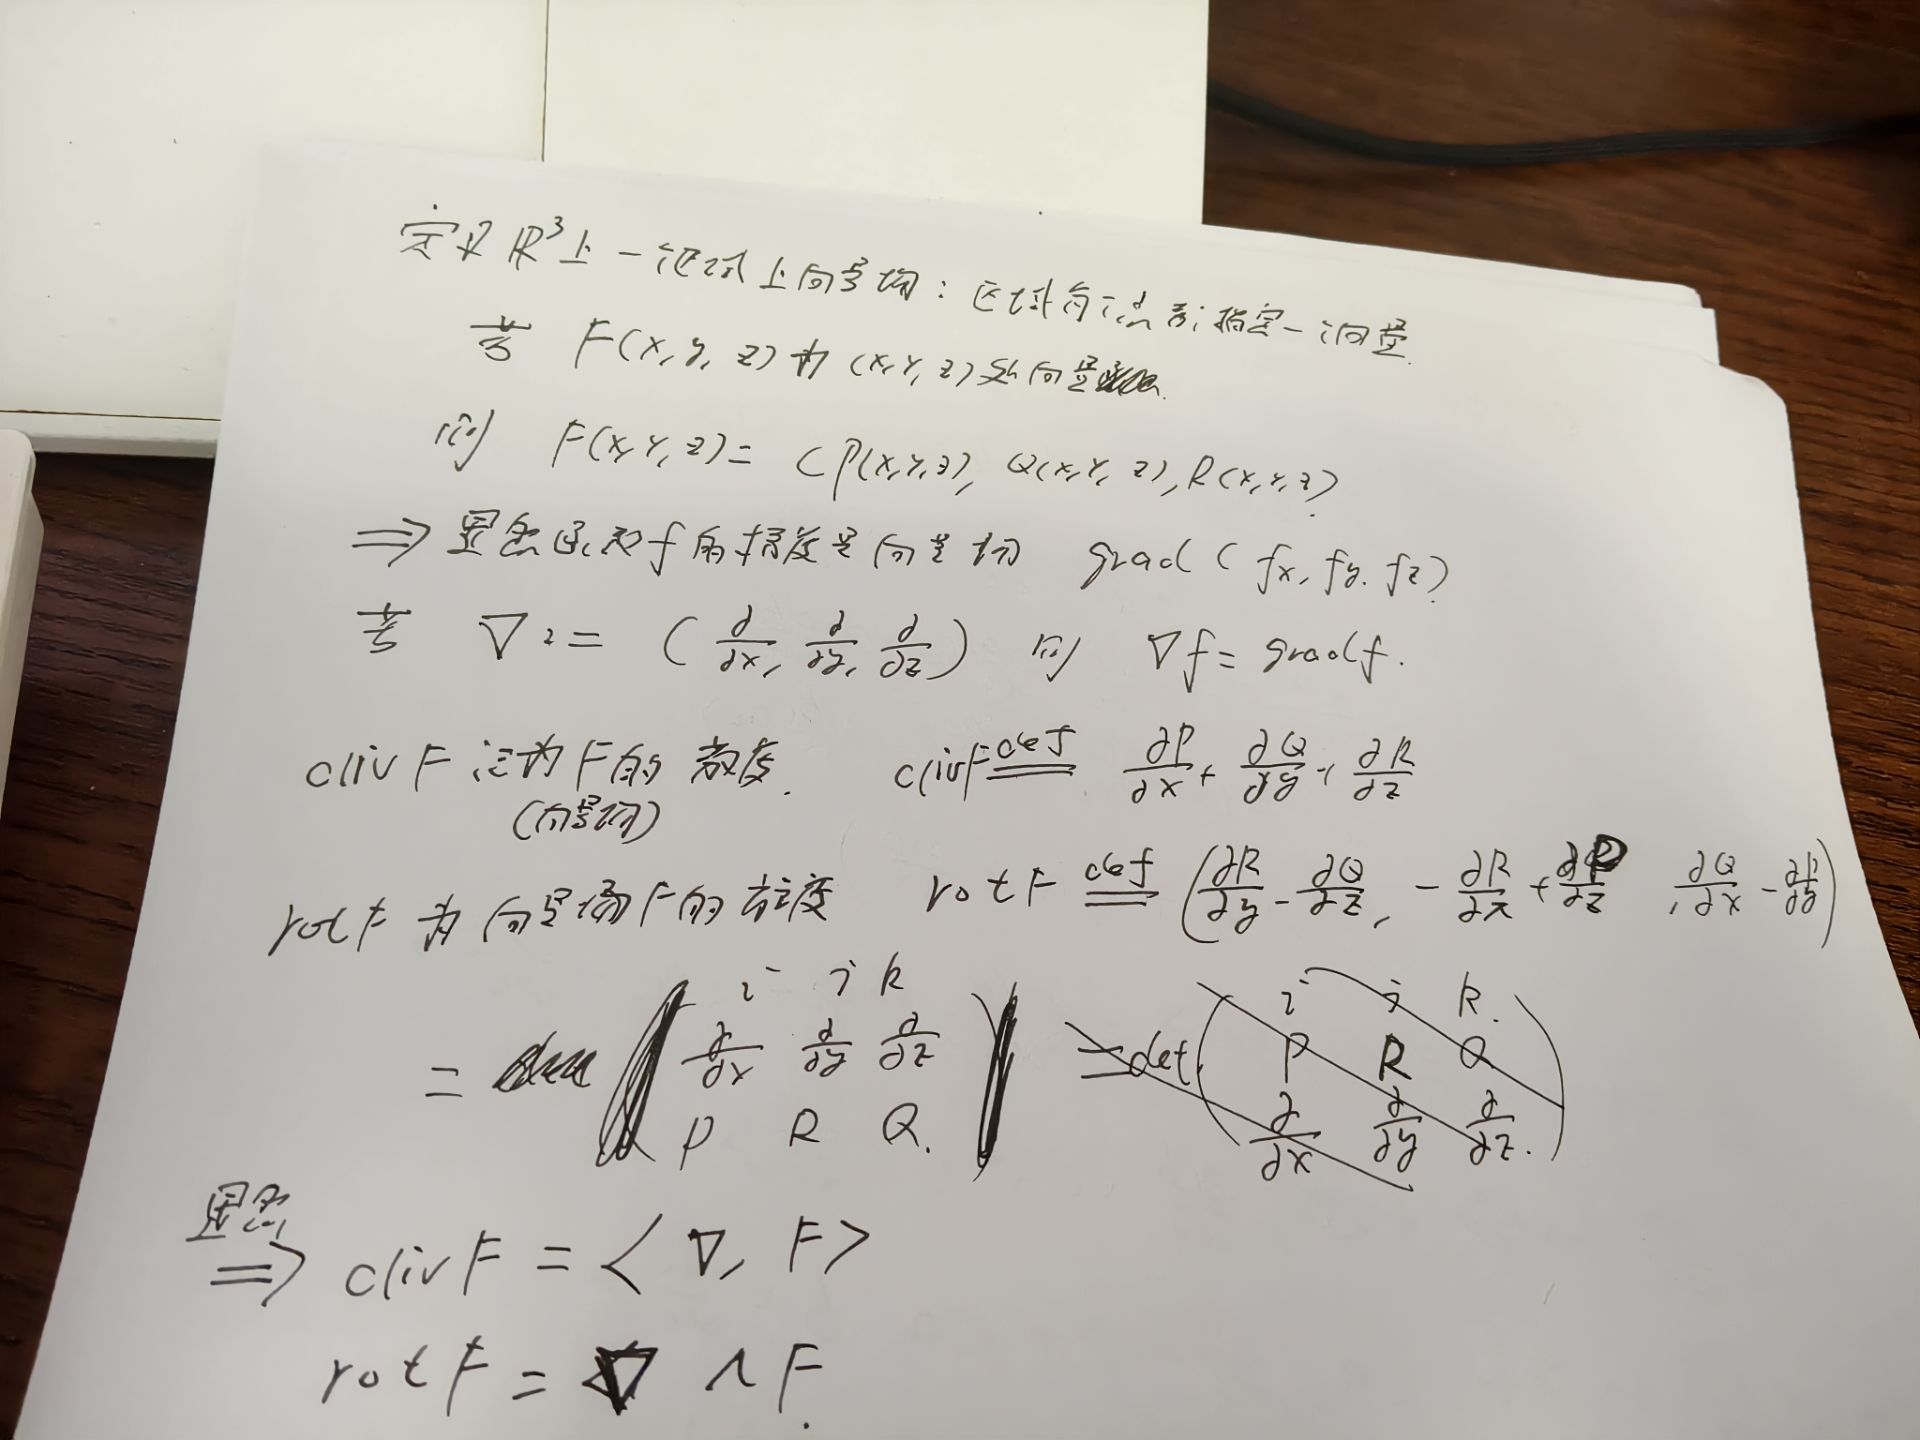 定义 ℝ³上一区域上向量场：区域每一点都指定一向量.
若 F(x, y, z) 为 (x, y, z) 处向量
则 F(x, y, z) = (P(x,y,z), Q(x,y,z), R(x,y,z))
⇒ 显然函数f的梯度是向量场 grad (fx, fy. fz)
若 ∇ := (∂/∂x, ∂/∂y, ∂/∂z) 则 ∇f = gradf.
divF 记为F的散度. divF def= ∂P/∂x + ∂Q/∂y + ∂R/∂z
(向量场)
rotF 为向量场F的旋度 rotF def= (∂R/∂y - ∂Q/∂z, -∂R/∂x + ∂P/∂z, ∂Q/∂x - ∂P/∂y)
= | i j k ; ∂/∂x ∂/∂y ∂/∂z ; P R Q. | = det ( i j k. ; P R Q ; ∂/∂x ∂/∂y ∂/∂z. )
显然
⇒ divF = <∇, F>
rotF = ∇ ∧ F.